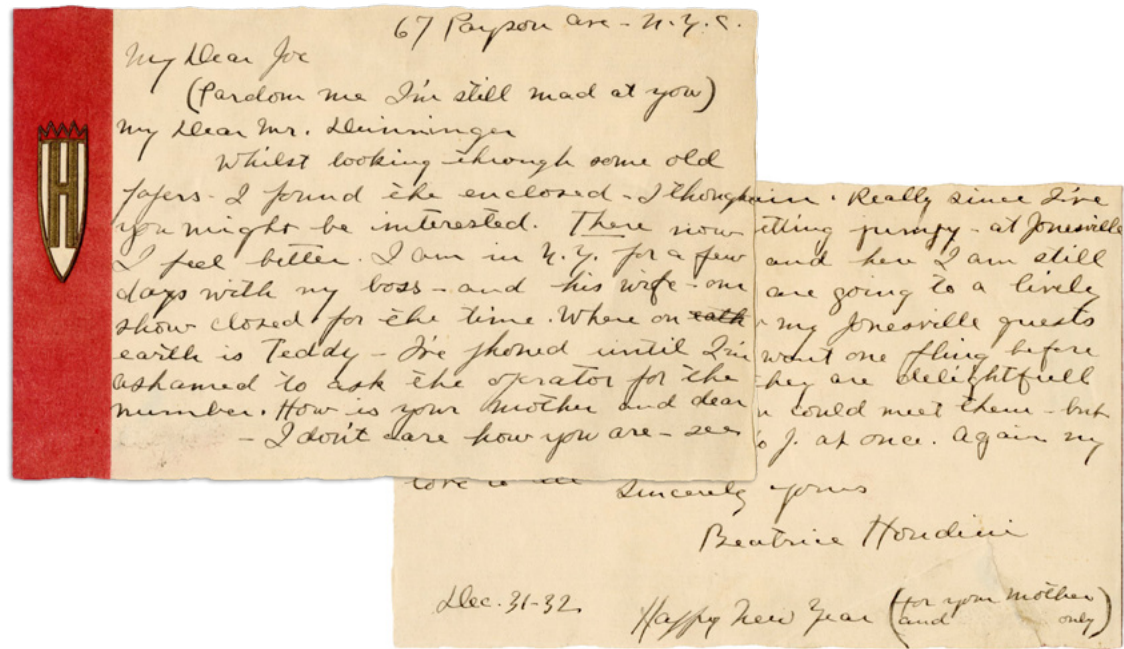 67 Payson ave - N.Y.C.
My Dear Joe
(Pardom me I'm still mad at you)
My Dear Mr. Dunninger
Whilst looking through some old
papers - I found the enclosed - I though
you might be interested. There now
I feel better. I am in N.Y. for a few
days with my boss - and his wife - our
show closed for the time. Where on eath
earth is Teddy - I've phoned until I'm
ashamed to ask the oprator for the
number. How is your mother and dear
- I don't care how you are - see
H
ain. Really since I've
etting jumpy - at Jonesville
and here I am still
are going to a lively
my Jonesville guests
want one fling before
hey are delightfull
u could meet them - but
o J. at once. Again my
love to all
Sincerely yours
Beatrice Houdini
Dec. 31-32
Happy New Year (for your mother
and only)